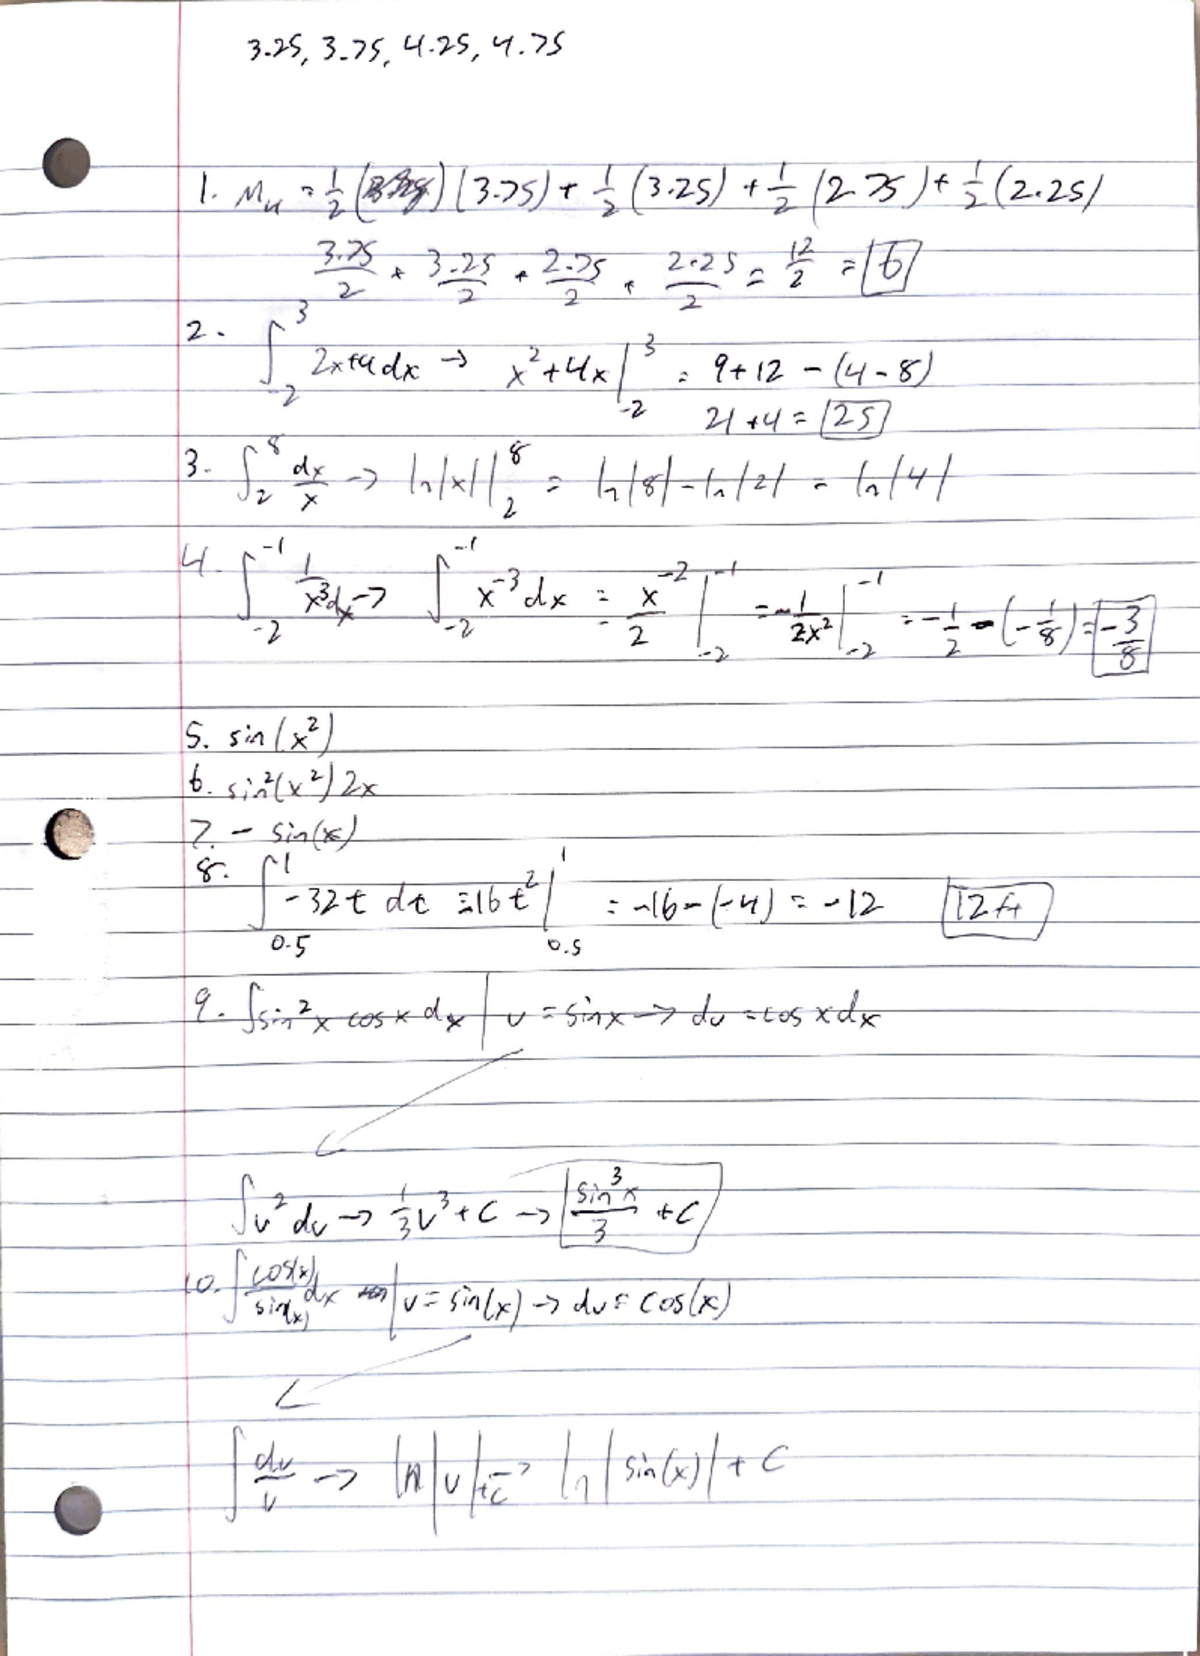 3.25, 3.75, 4.25, 4.75
1. M₄ = 1/2 (3.75) + 1/2 (3.25) + 1/2 (2.75) + 1/2 (2.25)
3.75/2 + 3.25/2 + 2.75/2 + 2.25/2 = 12/2 = 6
2. ∫₋₂³ 2x+4 dx → x²+4x |₋₂³ = 9+12 - (4-8)
21+4 = 25
3. ∫₂⁸ dx/x → ln|x| |₂⁸ = ln|8| - ln|2| = ln|4|
4. ∫₋₂⁻¹ 1/x³ dx → ∫₋₂⁻¹ x⁻³ dx = x⁻²/2 |₋₂⁻¹ = -1/2x² |₋₂⁻¹ = -1/2 - (-1/8) = -3/8
5. sin(x²)
6. sin²(x²) 2x
7. - sin(x)
8. ∫₀.₅¹ -32t dt = -16t² |₀.₅¹ = -16 - (-4) = -12 12 ft
9. ∫sin²x cos x dx | u = sinx → du = cos x dx
∫u² du → 1/3 u³ + C → sin³x/3 + C
10. ∫ cos(x)/sin(x) dx | u = sin(x) → du = cos(x)
∫ du/u → ln|u| + C → ln|sin(x)| + C